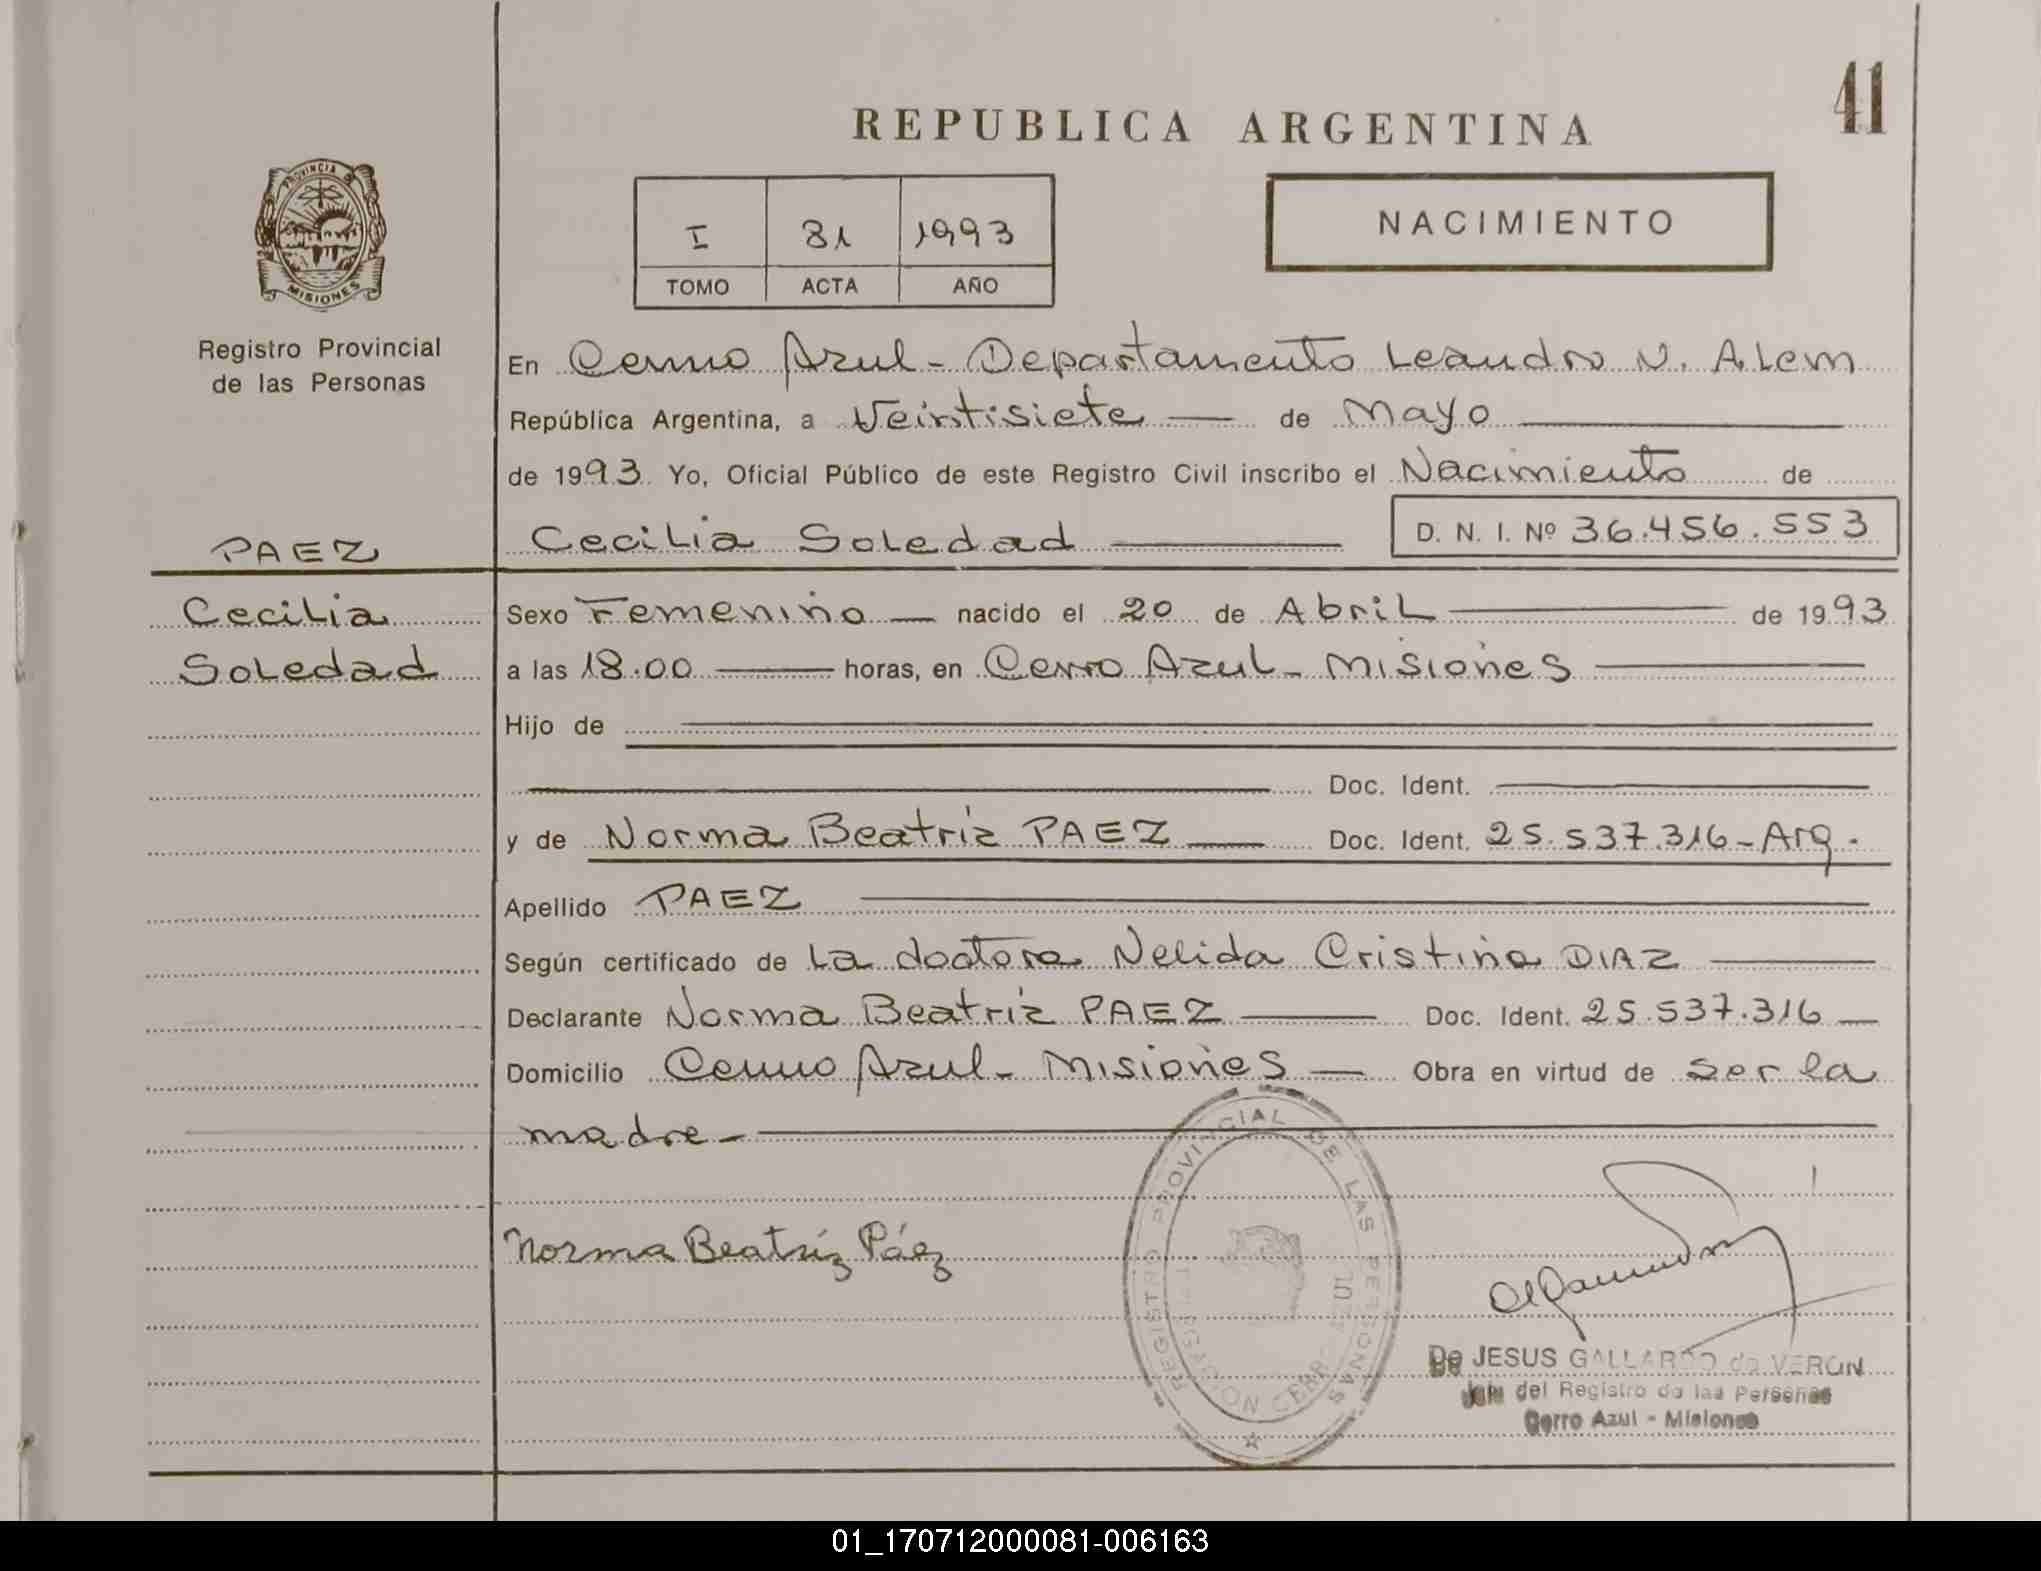 REPUBLICA ARGENTINA
41
PROVINCIA DE
MISIONES
Registro Provincial
de las Personas
I 81 1993
TOMO ACTA AÑO
NACIMIENTO
En Cerro Azul - Departamento Leandro N. Alem
República Argentina, a Veintisiete de Mayo
de 1993. Yo, Oficial Público de este Registro Civil inscribo el Nacimiento de
PAEZ
Cecilia Soledad D. N. I. Nº 36.456.553
Cecilia
Soledad
Sexo Femenino nacido el 20 de Abril de 1993
a las 18.00 horas, en Cerro Azul - Misiones
Hijo de
Doc. Ident.
y de Norma Beatriz PAEZ Doc. Ident. 25.537.316 - Arg.
Apellido PAEZ
Según certificado de La doctora Nelida Cristina DIAZ
Declarante Norma Beatriz PAEZ Doc. Ident. 25.537.316
Domicilio Cerro Azul - Misiones Obra en virtud de ser la
madre -
Norma Beatríz Páez
REGISTRO PROVINCIAL DE LAS PERSONAS
CERRO AZUL
De JESUS GALLARDO de VERON
Jefe del Registro de las Personas
Cerro Azul - Misiones
01_170712000081-006163